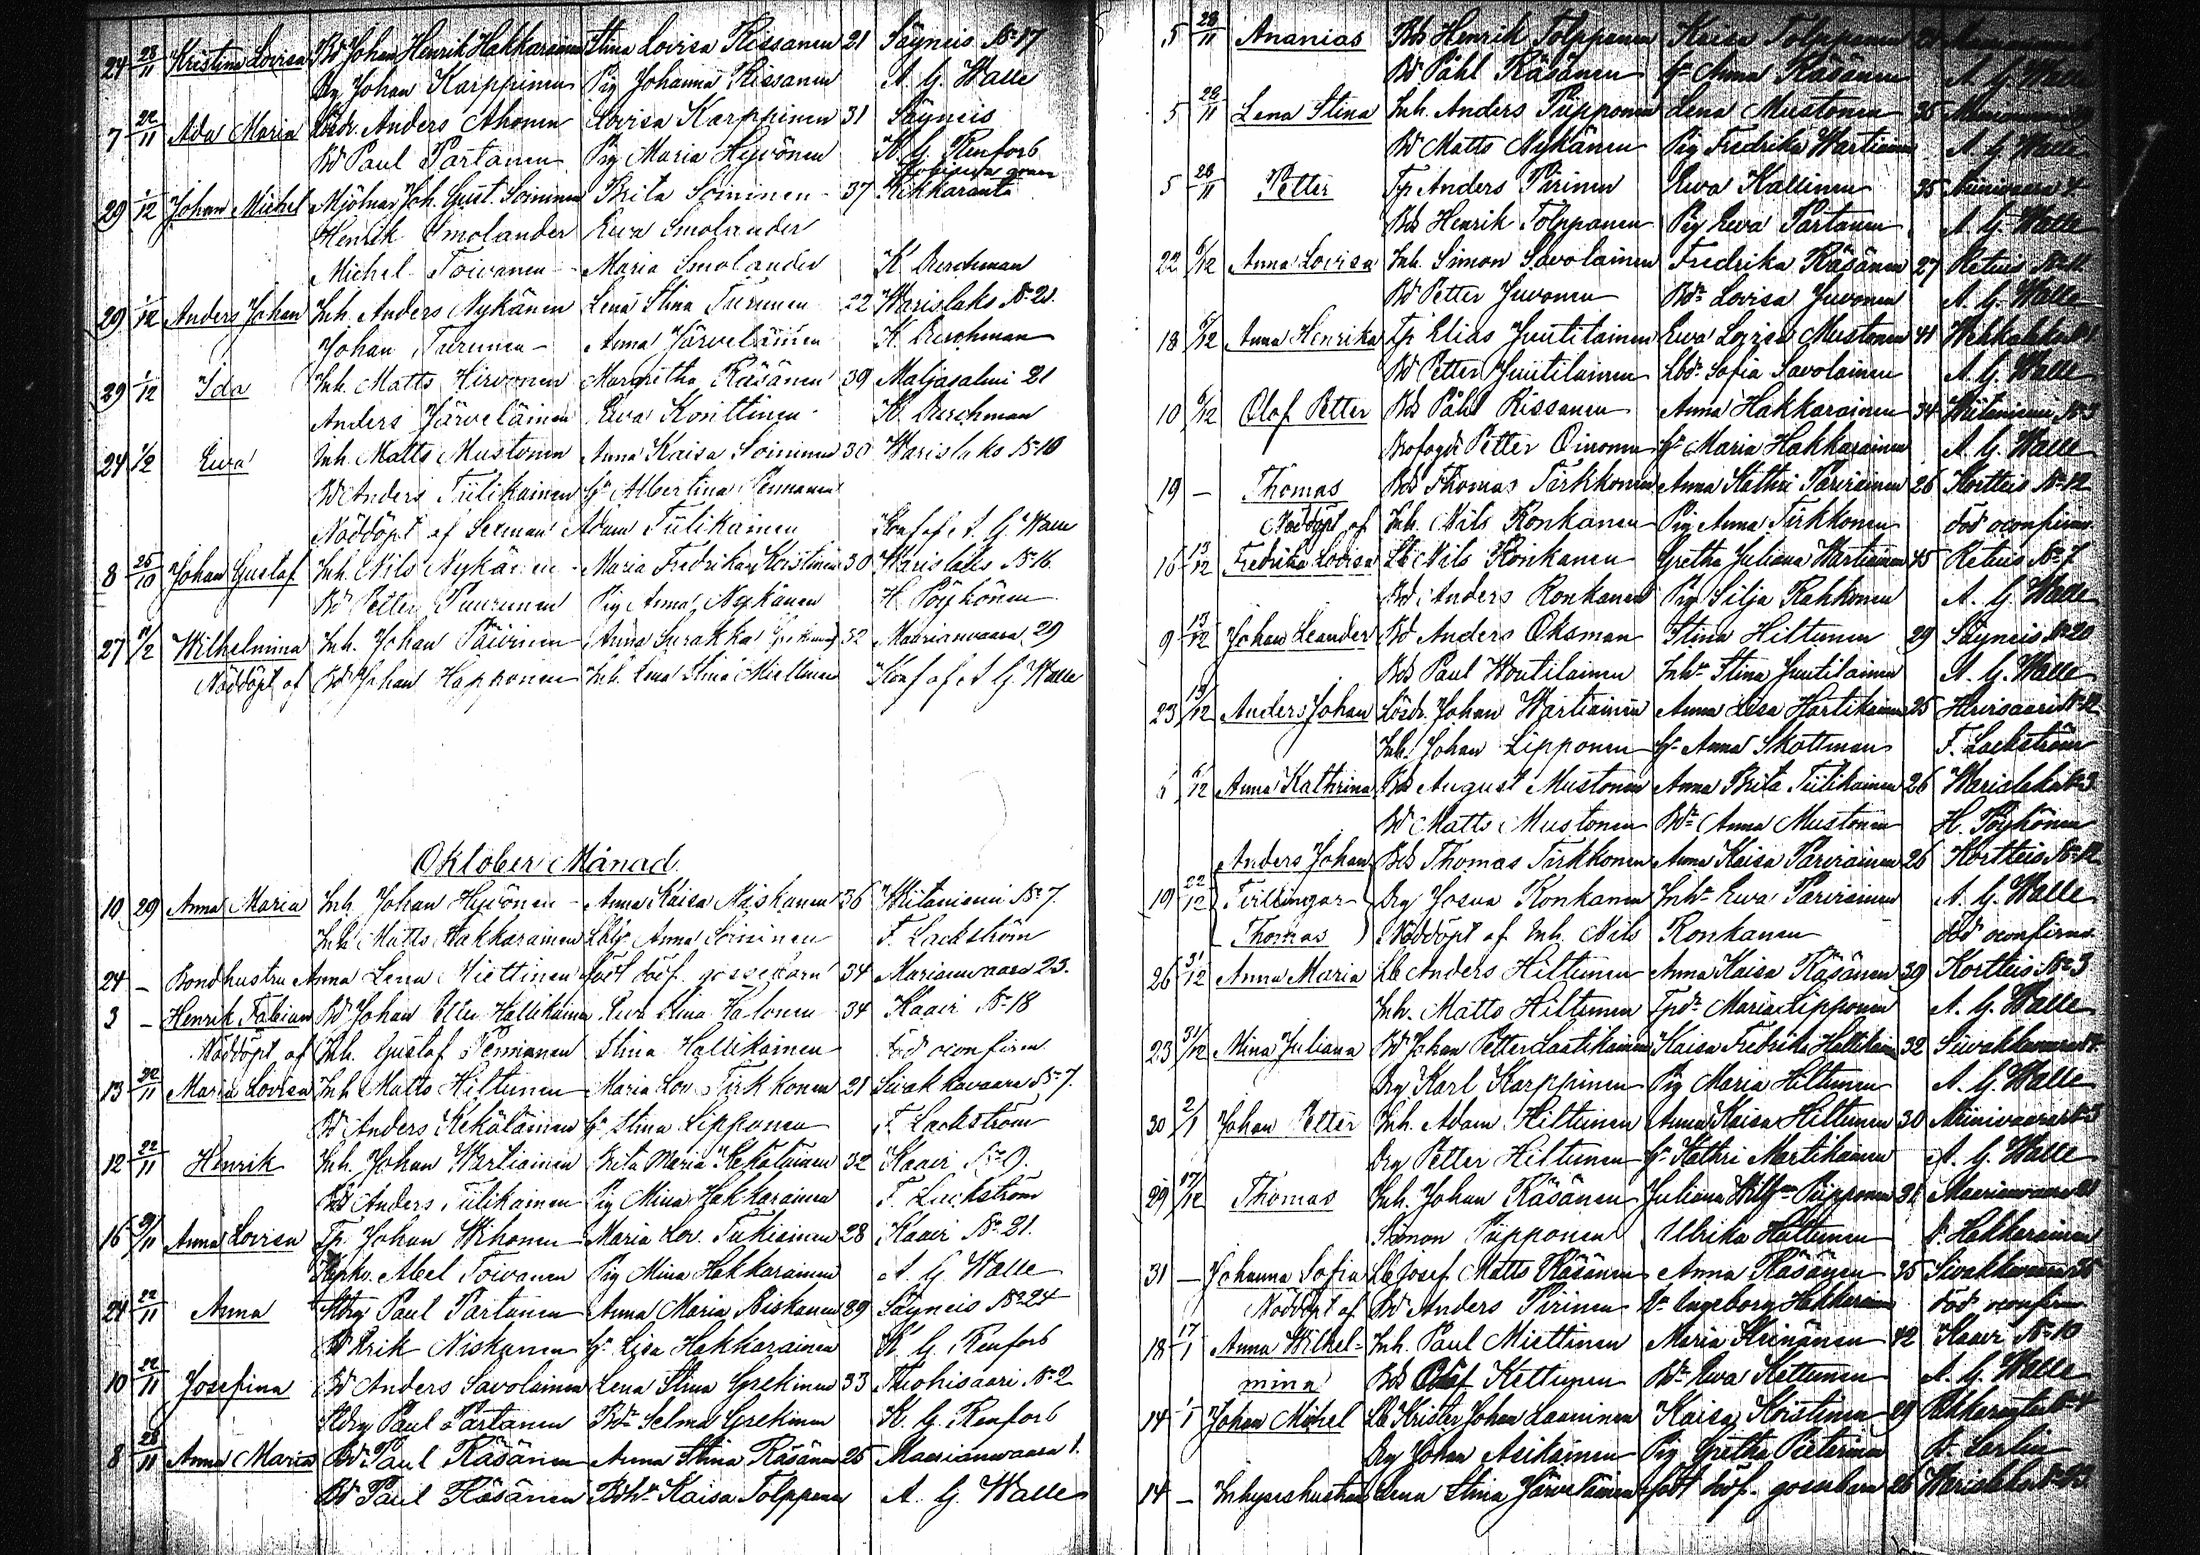 24 28/11 Kristina Lovisa Bd Johan Henrik Hakkarainen Stina Lovisa Rissanen 21 Säyneis No 17
Dg Johan Karppinen Pig Johanna Rissanen A. G. Walle
7 22/11 Ada Maria Lösdr. Anders Ahonen Lovisa Karppinen 31 Säyneis
Bd Paul Partanen Pig Maria Hyvönen K. G. Renfors
29 1/12 Johan Michel Mjölnar Joh. Gust. Soininen Brita Soininen 37
Henrik Smolander Eva Smolander
Michel Toivanen Maria Smolander K. Burchman
29 1/12 Anders Johan Inh. Anders Nykänen Lena Stina Turunen 22 Warislaks No 21.
Johan Turunen Anna Järveläinen K Burchman
29 1/12 Ida Inh. Matts Hirvonen Margretha Räsänen 39 Maljasalmi 21
Anders Järveläinen Ewa Konttinen K. Burchman
24 1/2 Ewa Inh. Matts Mustonen Anna Kaisa Soininen 30 Warislaks No 10
Bd Anders Tiilikainen Hu Albertina Pennanen
Nöddöpt af Sexman Adam Tiilikainen Konf af A. G. Walle
8 25/10 Johan Gustaf Inh. Nils Nykänen Maria Fredrika Koistinen 30 Warislaks No 16
Bd Petter Puurunen Pig Anna Nykänen H. Pöyhönen
27 Wilhelmina Inh. Johan Päivinen Anna Surakka 32 Maarianvaara 29
Nöddöpt af Bd Johan Happonen Inh. Lena Stina Miettinen Konf af A. G. Walle
Oktober Månad.
10 29 Anna Maria Inh. Johan Hyvönen Anna Kaisa Niskanen 36 Wiitaniemi No 7.
Inh. Matts Hakkarainen Anna Soininen F. Lackström
24 — Bondhustru Anna Lena Miettinen född döf. gossebarn 34 Marianvaara 23.
3 — Henrik Fabian Bd Johan Petter Hallikainen Eva Stina Halonen 34 Kaavi No 18
Nöddöpt af Inh. Gustaf Pennanen Stina Hallikainen Död oconfirm
13 22/11 Maria Lovisa Inh Matts Hiltunen Maria Lov. Tirkkonen 21 Sivakkavaara No 7.
Bd Anders Kekäläinen Hu Stina Lipponen F. Lackström
12 22/11 Henrik Inh. Johan Wartiainen Brita Maria Kekäläinen 32 Kaavi No 9.
Bd Anders Tiilikainen Pig Mina Hakkarainen F. Lackström
16 Anna Lovisa Tp. Johan Wihonen Maria Lov. Tukiainen 28 Kaavi No 21.
Abel Toivanen Pig Mina Hakkarainen A. G. Walle
24 22/11 Anna Paul Partanen Anna Maria Niskanen 39 Säyneis No 24
Bd Erik Niskanen Hu Lisa Hakkarainen K. G. Renfors
10 22/11 Josefina Bd Anders Savolainen Lena Stina Grekinen 33 No 2
Paul Partanen Selma Grekinen K. G. Renfors
8 28/11 Anna Maria Bd Paul Räsänen Anna Stina Räsänen 25 Maarianvaara 1.
Bd Paul Räsänen Kaisa Tolppanen A. G. Walle
5 28/11 Ananias Bds Henrik Tolppanen Kaisa Tolppanen
Bd Påhl Räsänen Hu Anna Räsänen A. G. Walle
5 28/11 Lena Stina Inh. Anders Piipponen Lena Mustonen 35
Bd Matts Nykänen Pig Fredrika Wartiainen A. G. Walle
5 28/11 Petter Tp Anders Pirinen Ewa Kallinen 35 Niinivaara 4
Bds Henrik Tolppanen Pig Ewa Partanen A. G. Walle
22 6/12 Anna Lovisa Inh. Simon Savolainen Fredrika Räsänen 27 Retuis No 11
Bd Petter Juvonen Lovisa Juvonen A. G. Walle
18 6/12 Anna Henrika Tp Elias Juutilainen Ewa Lovisa Mustonen 41
Bd Petter Juutilainen Sofia Savolainen A. G. Walle
10 6/12 Olof Petter Bds Påhl Rissanen Anna Hakkarainen 34 Wiitaniemi No 3
Petter Oinonen Hu Maria Hakkarainen A. G. Walle
19 — Thomas Bds Thomas Tirkkonen Anna Kathri Parviainen 26 Kortteis No 12
Nöddöpt af Inh. Nils Ronkanen Pig Anna Tirkkonen död oconfirm.
16 13/12 Fredrika Lovisa Lb Nils Ronkanen Gretha Juliana Wartiainen 45 Retuis No 7
Bd Anders Ronkanen Pig Silja Rahkonen A. G. Walle
9 13/12 Johan Leander Bd Anders Oksman Stina Hiltunen 29 Säyneis No 20
Bds Paul Woutilainen Stina Juutilainen A. G. Walle
23 13/12 Anders Johan Lösdr. Johan Wartiainen Anna Lisa Hartikainen 25 No 12
Inh. Johan Lipponen Hu Anna Skottman F. Lackström
Anna Kathrina Bds August Mustonen Anna Brita Tiilikainen 26 Warislaks No 3
Bd Matts Mustonen Anna Mustonen H. Pöyhönen
Anders Johan Bds Thomas Tirkkonen Anna Kaisa Parviainen 26 Kortteis No 12
19 22/12 Tvillingar Dg Josua Ronkanen Ewa Parviainen A. G. Walle
Thomas Nöddöpt af Inh. Nils Ronkanen död oconfirm.
26 31/12 Anna Maria Lb Anders Hiltunen Anna Kaisa Räsänen 39 Kortteis No 3
Inh. Matts Hiltunen Maria Lipponen A. G. Walle
23 31/12 Mina Juliana Bd Johan Petter Laatikainen Kaisa Fredrika Hallikainen 32
Dg Karl Karppinen Pig Maria Hiltunen A. G. Walle
30 2/1 Johan Petter Inh. Adam Hiltunen Anna Kaisa Hiltunen 30 Niinivaara No 3
Dg Petter Hiltunen Hu Kathri Martikainen A. G. Walle
29 17/12 Thomas Inh. Johan Räsänen Juliana Piipponen 31
Simon Piipponen Ulrika Hiltunen Hakkarainen
31 — Johanna Sofia Lb Josef Matts Räsänen Anna Räsänen 35
Nöddöpt af Bd Anders Pirinen Ingeborg Hakkarainen död oconfirm
18 17/1 Anna Wilhel- Inh. Paul Miettinen Maria Keinänen 42 Kaavi No 10
mina Bds Olof Kettunen Ewa Kettunen A. G. Walle
14 1/1 Johan Michel Lb Krister Johan Laaninen Kaisa Koistinen 29
Dg Johan Asikainen Pig Gretha Pieterinen
14 — Inhyseshustru Lena Stina Järveläinen född döf. gossebarn 26 Warislaks No 23